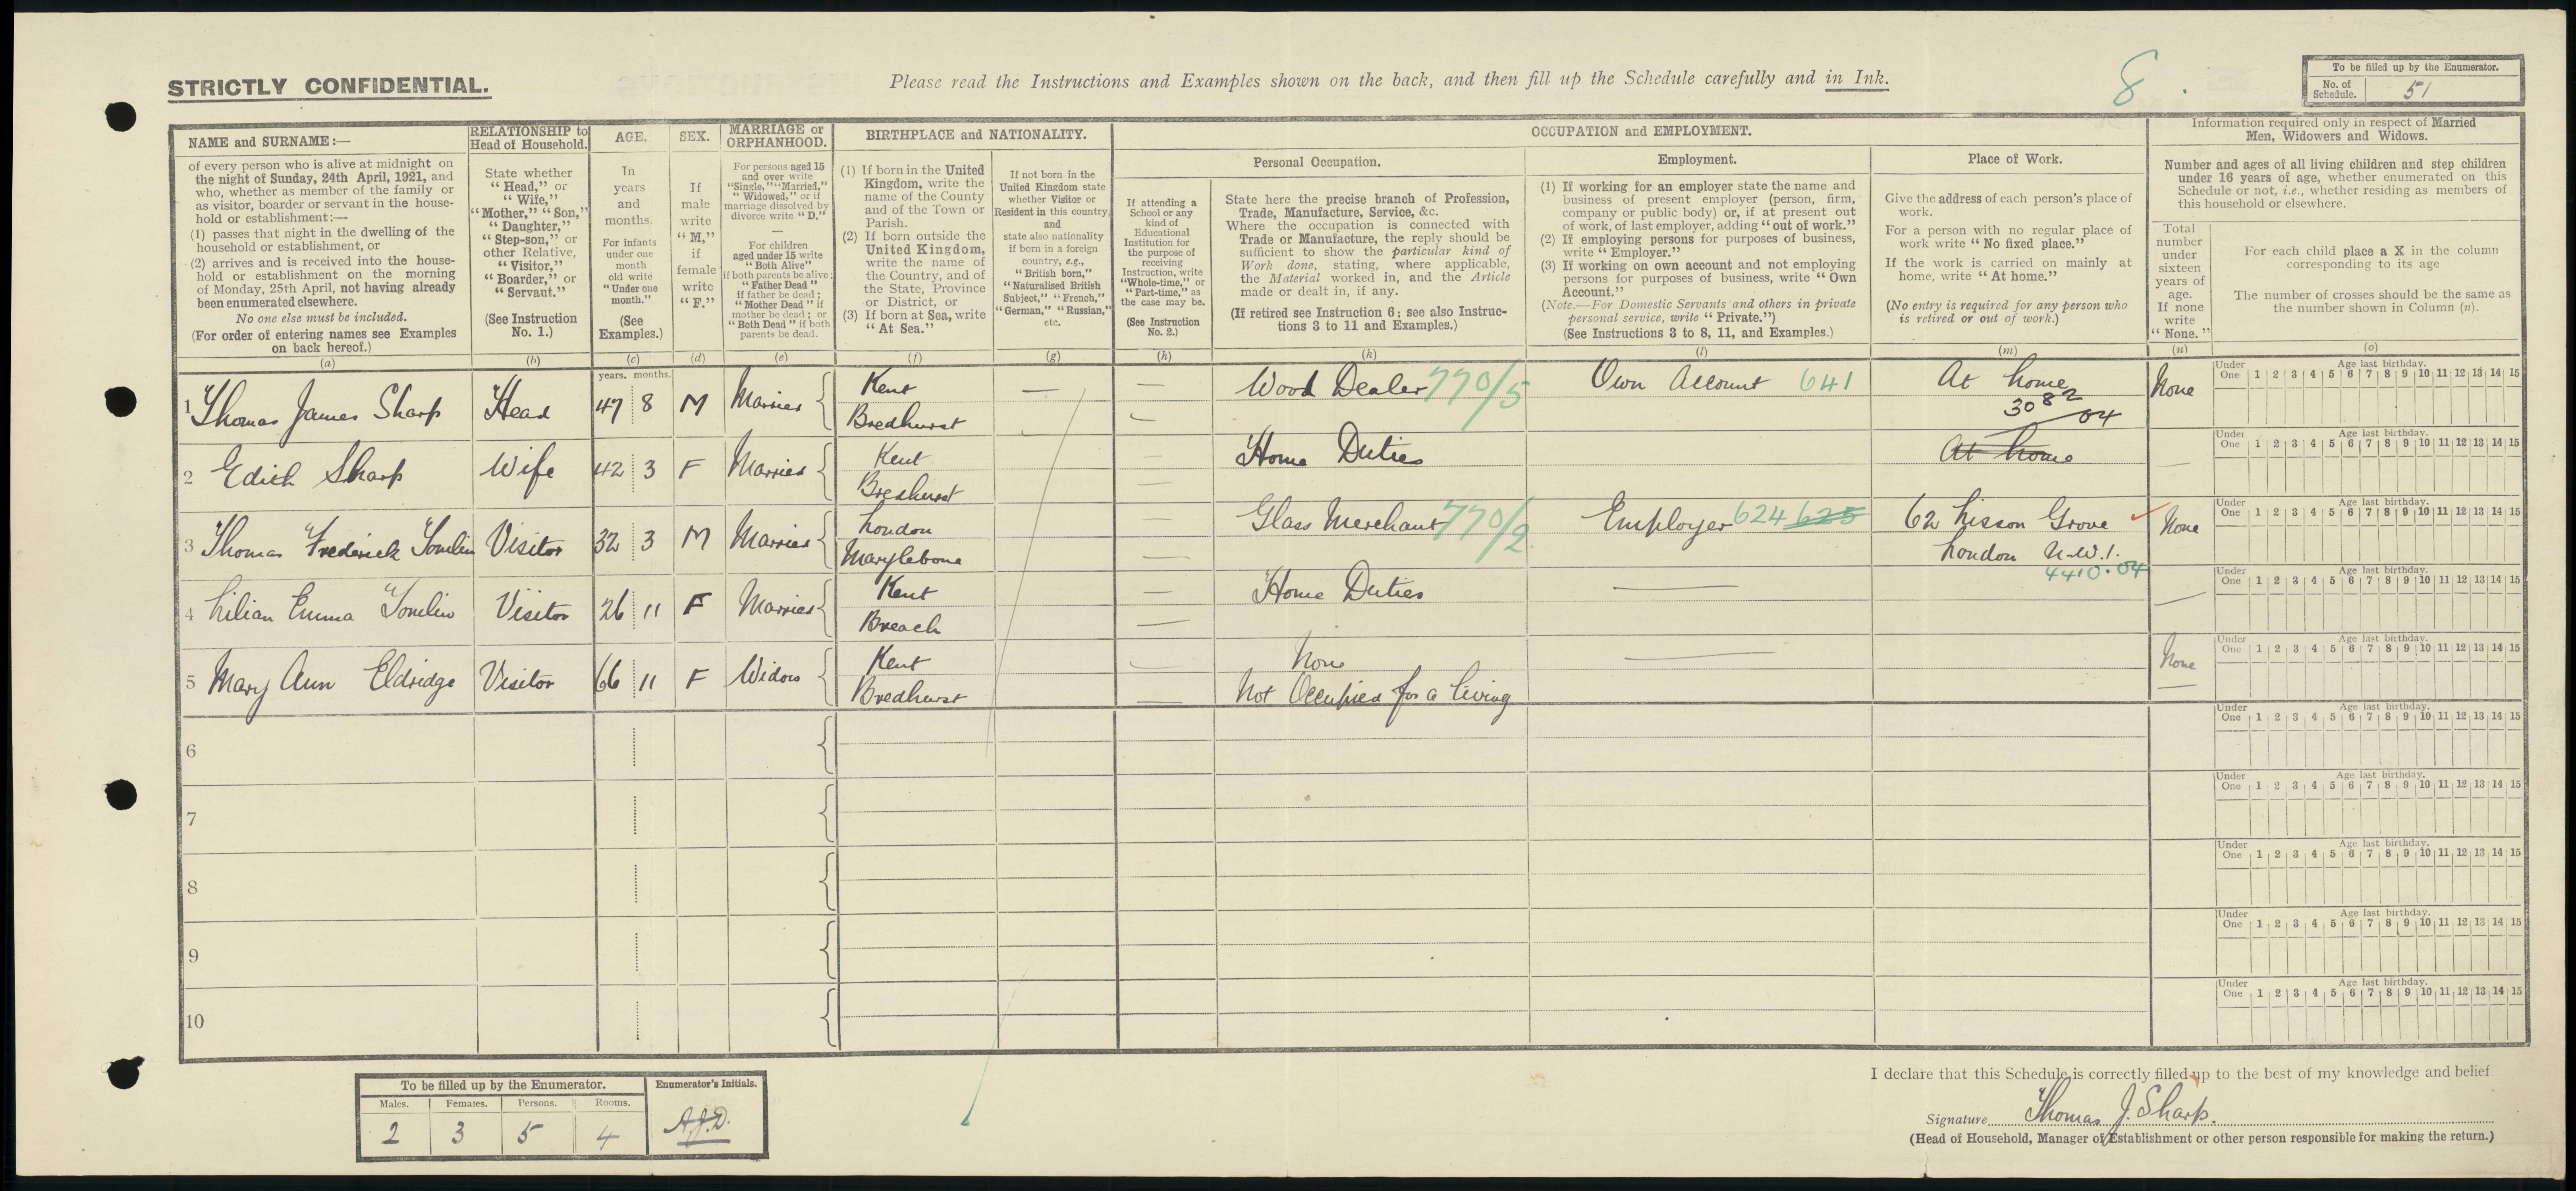 STRICTLY CONFIDENTIAL.
Please read the Instructions and Examples shown on the back, and then fill up the Schedule carefully and in Ink.
8.
To be filled up by the Enumerator.
No. of Schedule. 51
NAME and SURNAME:—
of every person who is alive at midnight on
the night of Sunday, 24th April, 1921, and
who, whether as member of the family or
as visitor, boarder or servant in the house-
hold or establishment:—
(1) passes that night in the dwelling of the
household or establishment, or
(2) arrives and is received into the house-
hold or establishment on the morning
of Monday, 25th April, not having already
been enumerated elsewhere.
No one else must be included.
(For order of entering names see Examples
on back hereof.)
(a)
RELATIONSHIP to
Head of Household.
State whether
"Head," or
"Wife,"
"Mother," "Son,"
"Daughter,"
"Step-son," or
other Relative,
"Visitor,"
"Boarder," or
"Servant."
(See Instruction
No. 1.)
(b)
AGE.
In
years
and
months.
For infants
under one
month
old write
"Under one
month."
(See
Examples.)
(c)
SEX.
If
male
write
"M,"
if
female
write
"F."
(d)
MARRIAGE or
ORPHANHOOD.
For persons aged 15
and over write
"Single," "Married,"
"Widowed," or if
marriage dissolved by
divorce write "D."
—
For children
aged under 15 write
"Both Alive"
if both parents be alive;
"Father Dead"
if father be dead;
"Mother Dead" if
mother be dead; or
"Both Dead" if both
parents be dead.
(e)
BIRTHPLACE and NATIONALITY.
(1) If born in the United
Kingdom, write the
name of the County
and of the Town or
Parish.
(2) If born outside the
United Kingdom,
write the name of
the Country, and of
the State, Province
or District, or
(3) If born at Sea, write
"At Sea."
(f)
If not born in the
United Kingdom state
whether Visitor or
Resident in this country,
and
state also nationality
if born in a foreign
country, e.g.,
"British born,"
"Naturalised British
Subject," "French,"
"German," "Russian,"
etc.
(g)
OCCUPATION and EMPLOYMENT.
If attending a
School or any
kind of
Educational
Institution for
the purpose of
receiving
Instruction, write
"Whole-time," or
"Part-time," as
the case may be.
(See Instruction
No. 2.)
(h)
Personal Occupation.
State here the precise branch of Profession,
Trade, Manufacture, Service, &c.
Where the occupation is connected with
Trade or Manufacture, the reply should be
sufficient to show the particular kind of
Work done, stating, where applicable,
the Material worked in, and the Article
made or dealt in, if any.
(If retired see Instruction 6; see also Instruc-
tions 3 to 11 and Examples.)
(k)
Employment.
(1) If working for an employer state the name and
business of present employer (person, firm,
company or public body) or, if at present out
of work, of last employer, adding "out of work."
(2) If employing persons for purposes of business,
write "Employer."
(3) If working on own account and not employing
persons for purposes of business, write "Own
Account."
(Note.—For Domestic Servants and others in private
personal service, write "Private.")
(See Instructions 3 to 8, 11, and Examples.)
(l)
Place of Work.
Give the address of each person's place of
work.
For a person with no regular place of
work write "No fixed place."
If the work is carried on mainly at
home, write "At home."
(No entry is required for any person who
is retired or out of work.)
(m)
Information required only in respect of Married
Men, Widowers and Widows.
Number and ages of all living children and step children
under 16 years of age, whether enumerated on this
Schedule or not, i.e., whether residing as members of
this household or elsewhere.
Total
number
under
sixteen
years of
age.
If none
write
"None."
(n)
For each child place a X in the column
corresponding to its age
The number of crosses should be the same as
the number shown in Column (n).
(o)
years. months.
1 Thomas James Sharp Head 47 8 M Married Kent Bredhurst — Wood Dealer 770/5 Own Account 641 At home 3082/04 None
2 Edith Sharp Wife 42 3 F Married Kent Bredhurst Home Duties At home
3 Thomas Frederick Tomlin Visitor 32 3 M Married London Marylebone Glass Merchant 770/2 Employer 624 625 62 Lisson Grove London N.W.1. 4410.04 None
4 Lilian Emma Tomlin Visitor 26 11 F Married Kent Breach Home Duties —
5 Mary Ann Eldridge Visitor 66 11 F Widow Kent Bredhurst None Not Occupied for a living — None
6
7
8
9
10
Under One Age last birthday. 1 2 3 4 5 6 7 8 9 10 11 12 13 14 15
Under One Age last birthday. 1 2 3 4 5 6 7 8 9 10 11 12 13 14 15
Under One Age last birthday. 1 2 3 4 5 6 7 8 9 10 11 12 13 14 15
Under One Age last birthday. 1 2 3 4 5 6 7 8 9 10 11 12 13 14 15
Under One Age last birthday. 1 2 3 4 5 6 7 8 9 10 11 12 13 14 15
Under One Age last birthday. 1 2 3 4 5 6 7 8 9 10 11 12 13 14 15
Under One Age last birthday. 1 2 3 4 5 6 7 8 9 10 11 12 13 14 15
Under One Age last birthday. 1 2 3 4 5 6 7 8 9 10 11 12 13 14 15
Under One Age last birthday. 1 2 3 4 5 6 7 8 9 10 11 12 13 14 15
Under One Age last birthday. 1 2 3 4 5 6 7 8 9 10 11 12 13 14 15
To be filled up by the Enumerator.
Males. Females. Persons. Rooms.
2 3 5 4
Enumerator's Initials.
A.J.D.
I declare that this Schedule is correctly filled up to the best of my knowledge and belief
Signature Thomas J. Sharp.
(Head of Household, Manager of Establishment or other person responsible for making the return.)